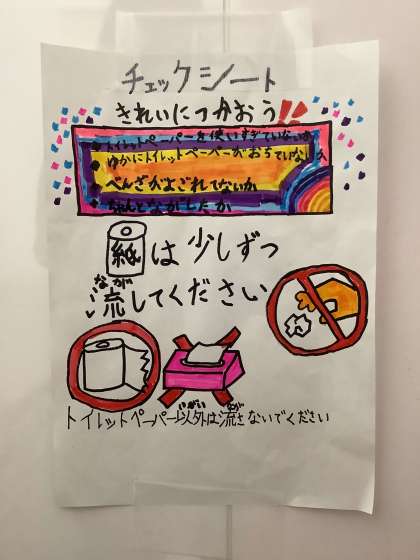 チェックシート
きれいにつかおう!!
・トイレットペーパーを使いすぎていないか
・ゆかにトイレットペーパーがおちていないか
・べんざがよごれてないか
・ちゃんとながしたか
紙は少しずつ
なが
流してください
いがい なが
トイレットペーパー以外は流さないでください